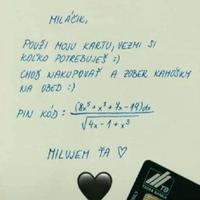 MILÁČIK,
POUŽI MOJU KARTU, VEZMI SI
KOĽKO POTREBUJEŠ :)
CHOĎ NAKUPOVAŤ A ZOBER KAMOŠKY
NA OBED :)
PIN KÓD: (8x⁵ + x³ + 4x - 19)dx
√4x - 1 + x³
MILUJEM ŤA ♡